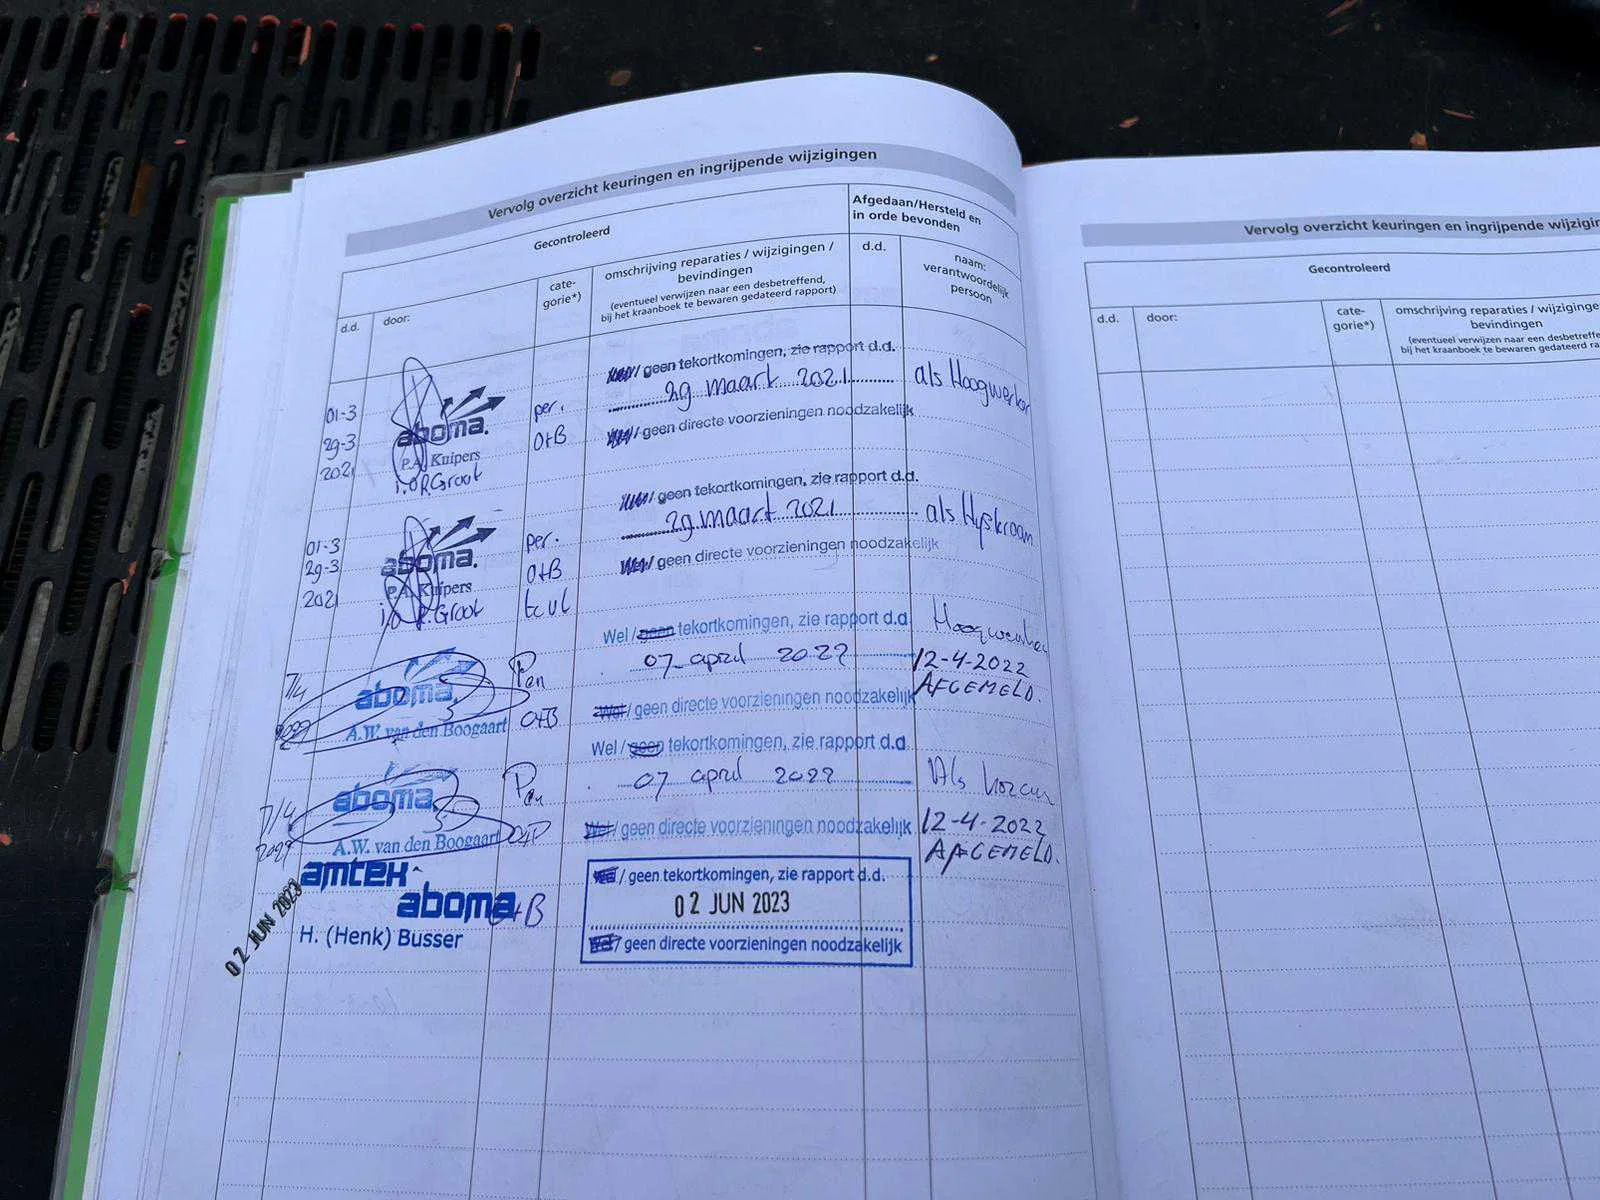 Vervolg overzicht keuringen en ingrijpende wijzigingen
Gecontroleerd
Afgedaan/Hersteld en
in orde bevonden
d.d.
door:
cate-
gorie*)
omschrijving reparaties / wijzigingen /
bevindingen
(eventueel verwijzen naar een desbetreffend,
bij het kraanboek te bewaren gedateerd rapport)
d.d.
naam:
verantwoordelijk
persoon
01-3
29-3
2021
aboma.
P.A. Kuipers
i.o R.Groot
per.
O+B
/ geen tekortkomingen, zie rapport d.d.
29 maart 2021
/ geen directe voorzieningen noodzakelijk
als Hoogwerker
01-3
29-3
2021
aboma.
P.A. Kuipers
i.o R.Groot
per.
O+B
/ geen tekortkomingen, zie rapport d.d.
29 maart 2021
Wel / geen directe voorzieningen noodzakelijk
als Hijskraan
7/4
2022
aboma.
A.W. van den Boogaart
O+B
Wel / geen tekortkomingen, zie rapport d.d.
07 april 2022
Wel / geen directe voorzieningen noodzakelijk
Hoogwerker
12-4-2022
AFGEMELD.
7/4
2022
aboma.
A.W. van den Boogaart
Wel / geen tekortkomingen, zie rapport d.d.
07 april 2022
Wel / geen directe voorzieningen noodzakelijk
Als
12-4-2022
AFGEMELD.
02 JUN 2023
amtex
aboma
H. (Henk) Busser
O+B
Wel / geen tekortkomingen, zie rapport d.d.
02 JUN 2023
Wel / geen directe voorzieningen noodzakelijk
Vervolg overzicht keuringen en ingrijpende
Gecontroleerd
d.d.
door:
cate-
gorie*)
omschrijving reparaties /
bevindingen
(eventueel verwijzen naar een
bij het kraanboek te bewaren gedateerd